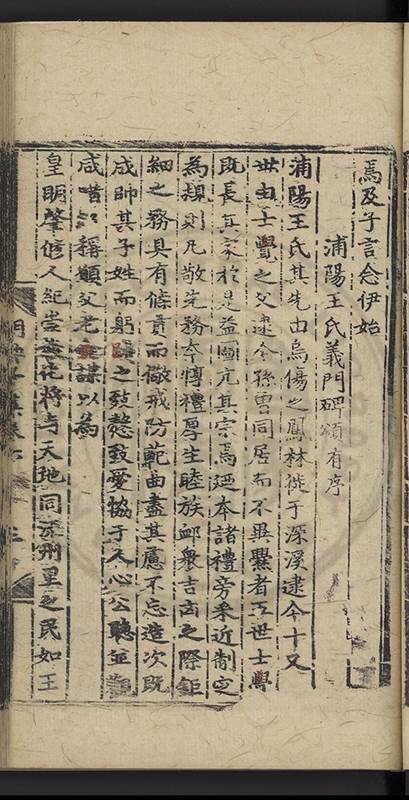 焉及子言念伊始
浦陽王氏義門碑頌有序
浦陽王氏其先由烏傷之鳳林徙于深溪逮今十又
世由士覺之父逮今孫曾同居而不異爨者五世士覺
既長其家於是益圖亢其宗焉廼本諸禮旁采近制定
為類則凡敬先務本惇禮厚生睦族卹衆吉凶之際鉅
細之務具有條貫而儆戒防範曲盡其慮不忘造次既
成帥其子姓而躬蹈之致愨致愛協于人心公聽並觀
咸嘖嘖稱願父老謀以為
皇明肇修人紀崇化將與天地同流州里之民如王